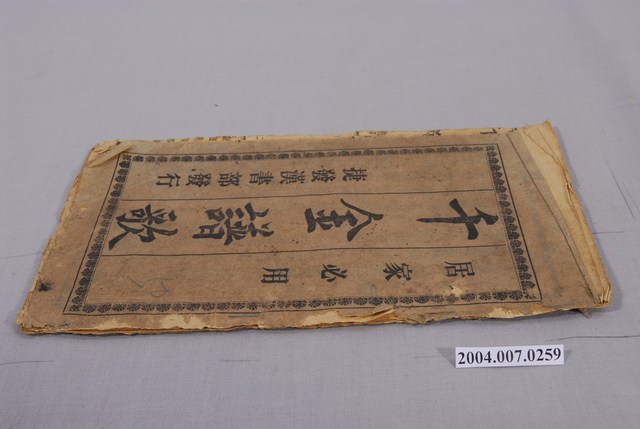 居家必用
千金譜歌
捷發漢書部發行
2004.007.0259